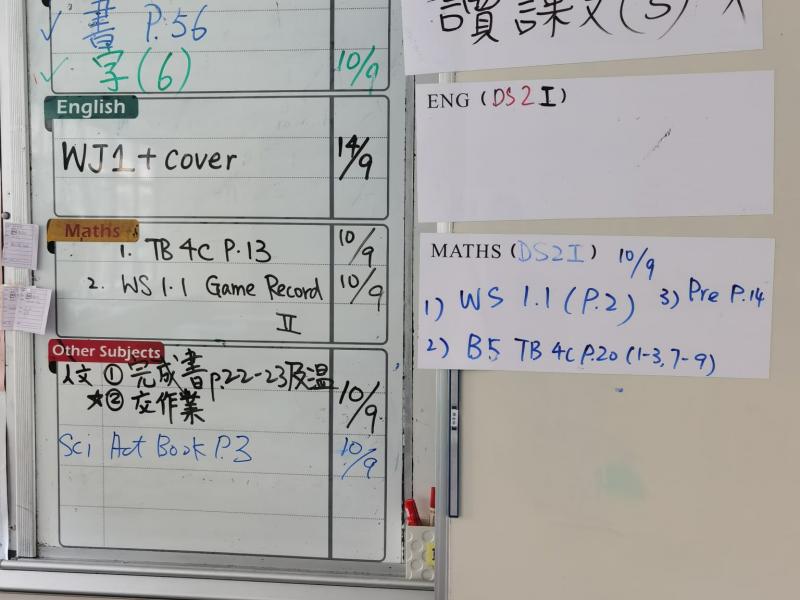 書 P.56
字(6) 10/9
English
WJ1 + cover 14/9
Maths
1. TB 4C P.13 10/9
2. WS 1.1 Game Record 10/9
II
Other Subjects
人文 ① 完成書p.22-23及温
★② 交作業 10/9
Sci Act Book P.3 10/9
讀課文(5)
ENG (DS2 I)
MATHS (DS2 I) 10/9
1) WS 1.1 (P.2) 3) Pre P.14
2) B5 TB 4C P.20 (1-3, 7-9)